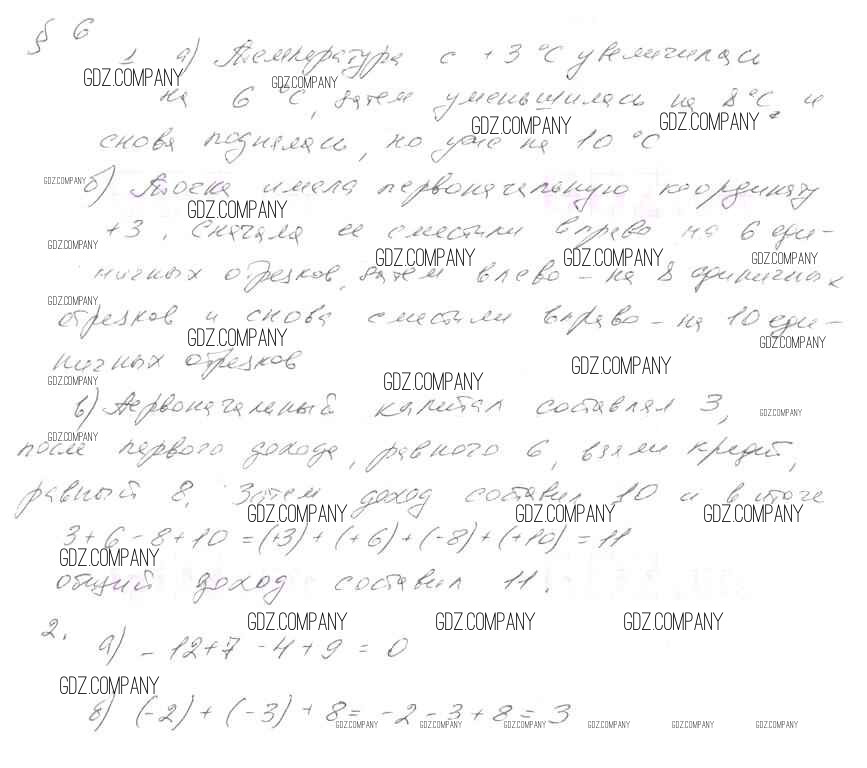 § 6
1 а) Температура с +3 °С увеличилась
GDZ.COMPANY GDZ.COMPANY
на 6 °С, затем уменьшилась на 8 °С и
GDZ.COMPANY GDZ.COMPANY
снова поднялась, но уже на 10 °С
GDZ.COMPANY б) Точка имела первоначальную координату
GDZ.COMPANY
+3. Сначала ее сместили вправо на 6 еди-
GDZ.COMPANY GDZ.COMPANY GDZ.COMPANY GDZ.COMPANY
ничных отрезков, затем влево – на 8 единичных
GDZ.COMPANY
отрезков и снова сместили вправо – на 10 еди-
GDZ.COMPANY GDZ.COMPANY
ничных отрезков
GDZ.COMPANY GDZ.COMPANY GDZ.COMPANY
в) Первоначальный капитал составлял 3,
GDZ.COMPANY GDZ.COMPANY
после первого дохода, равного 6, взяли кредит,
равный 8. Затем доход составил 10 и в итоге
GDZ.COMPANY GDZ.COMPANY GDZ.COMPANY
3 + 6 - 8 + 10 = (+3) + (+6) + (-8) + (+10) = 11
GDZ.COMPANY
общий доход составил 11.
GDZ.COMPANY GDZ.COMPANY GDZ.COMPANY
2. а) - 12 + 7 - 4 + 9 = 0
GDZ.COMPANY
б) (-2) + (-3) + 8 = -2 - 3 + 8 = 3
GDZ.COMPANY GDZ.COMPANY GDZ.COMPANY GDZ.COMPANY GDZ.COMPANY GDZ.COMPANY